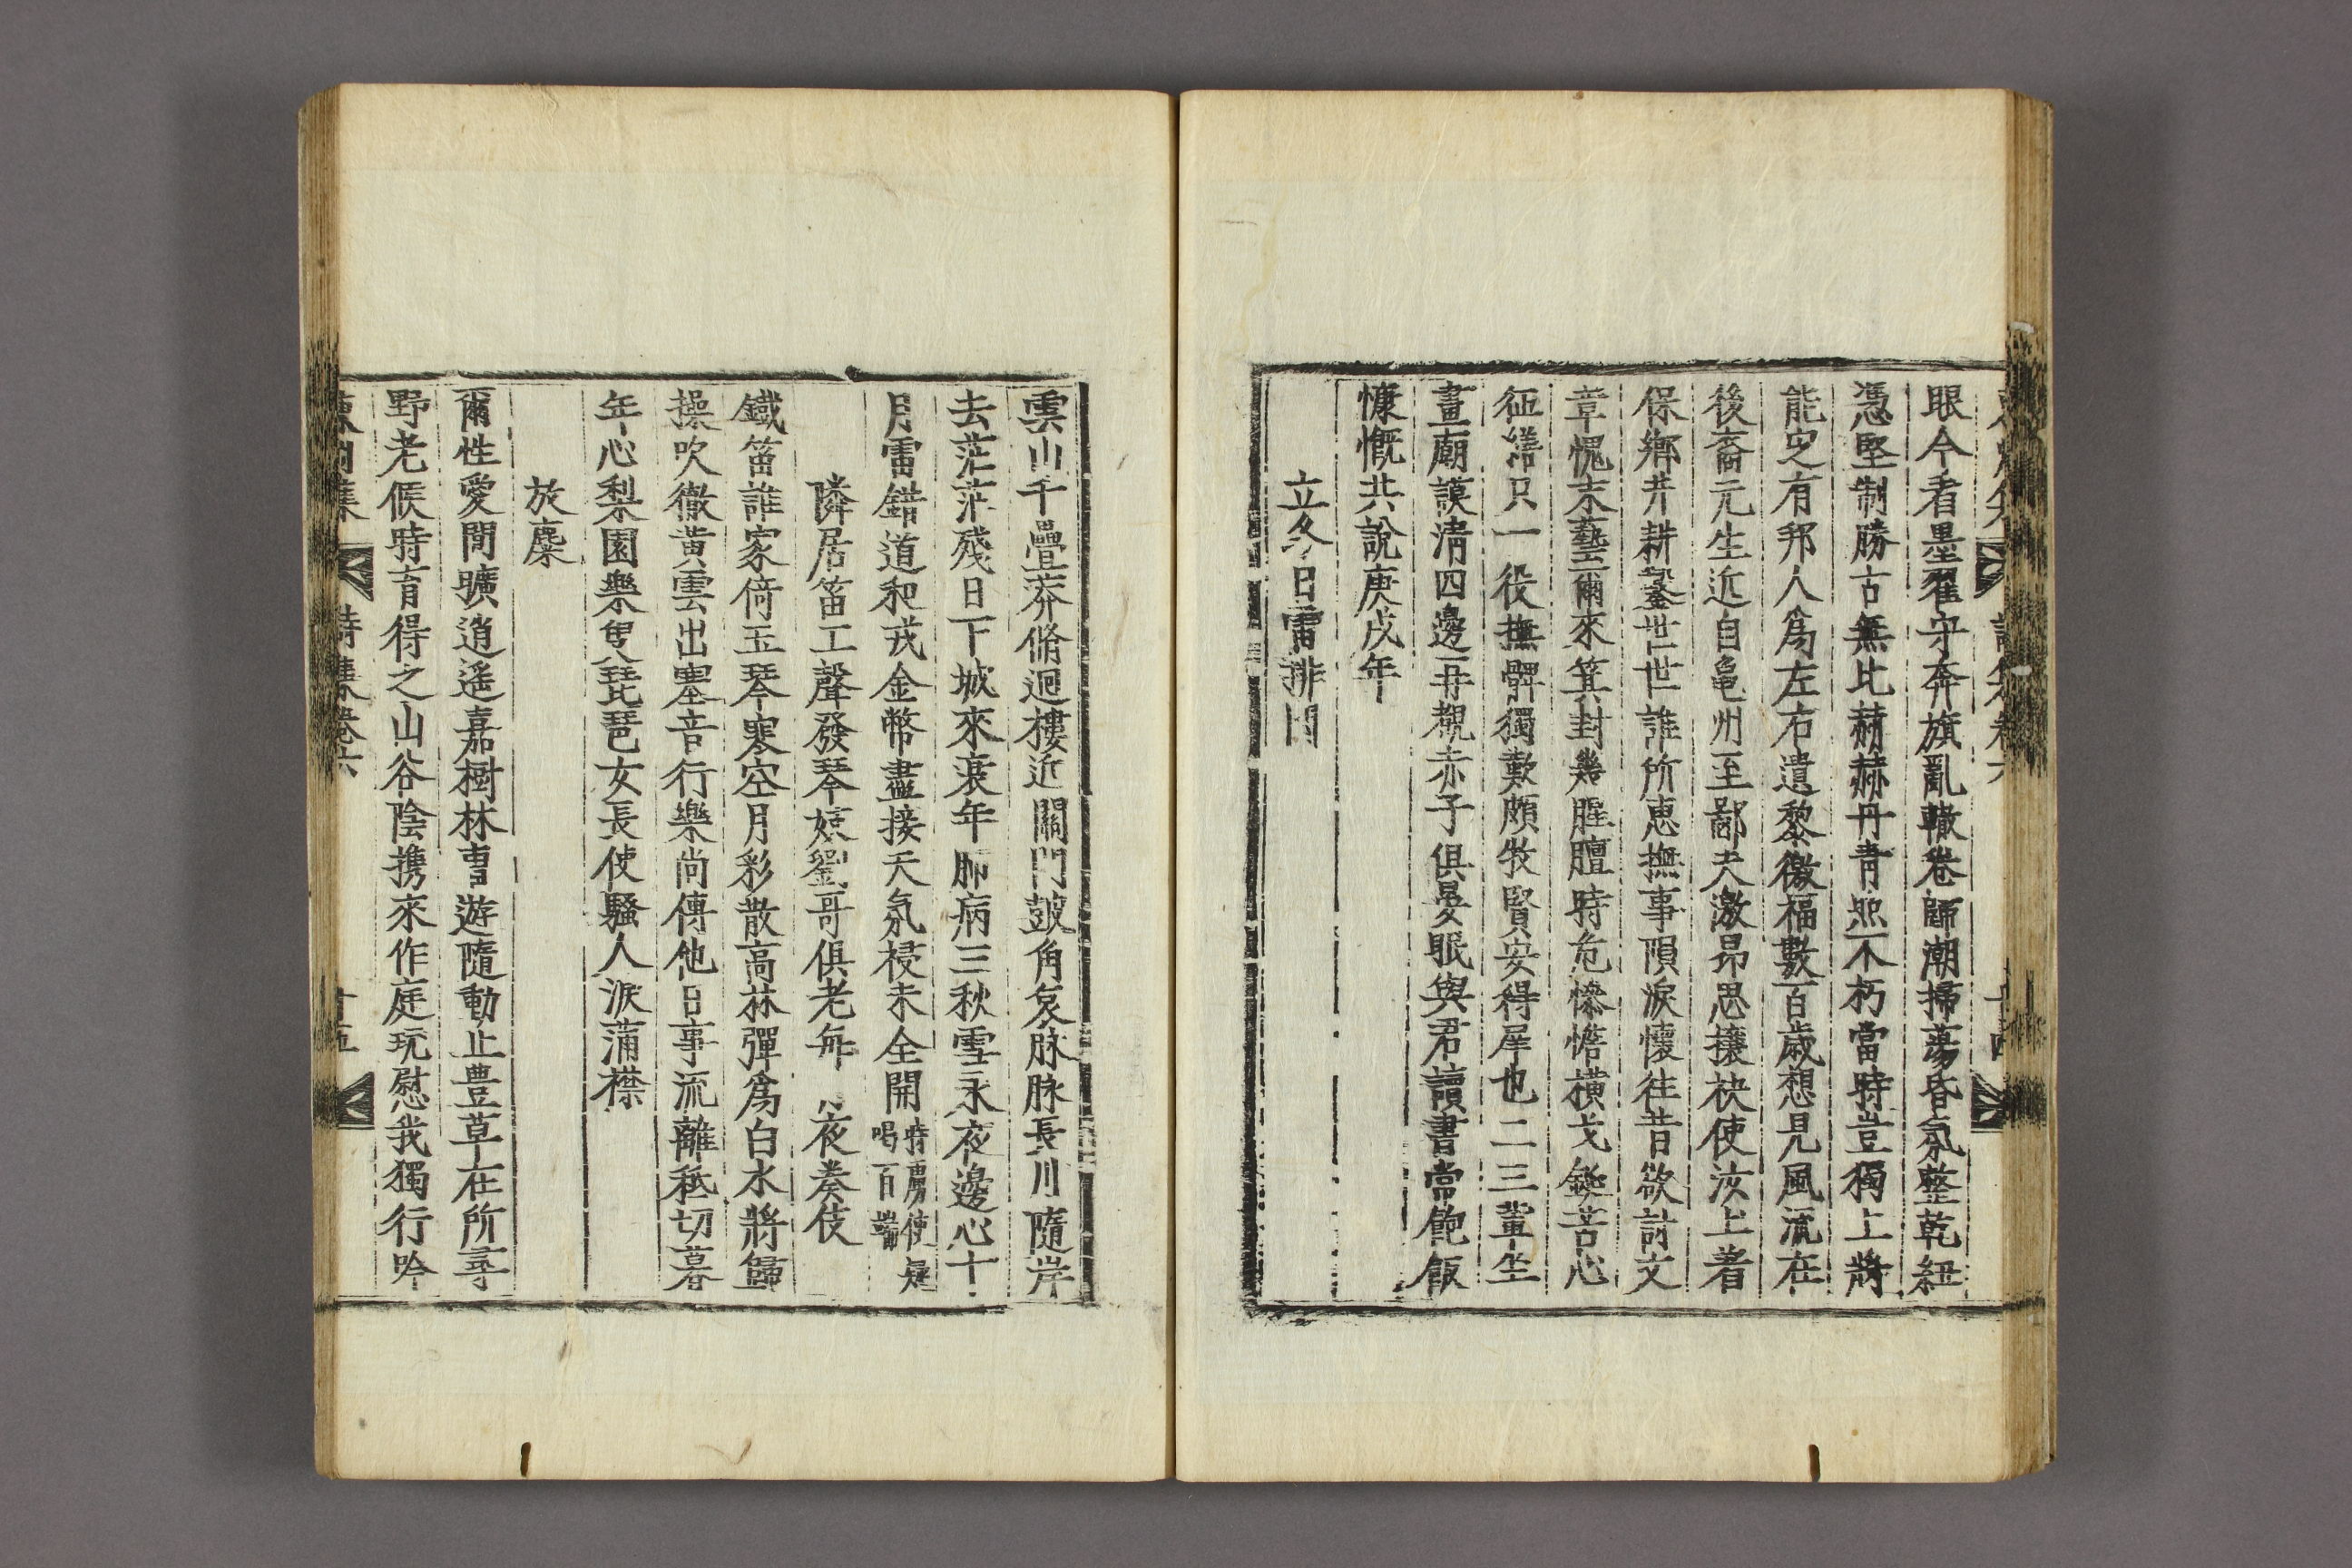 眼今看墨翟守奔旗亂轍卷歸潮掃蕩昏氛整乾紐
憑堅制勝古無比赫赫丹靑照不朽當時豈獨上將
能乏有邦人爲左右遺黎徼福數百歲想見風流在
後裔元生近自龜州至鄙夫激昂思攘袂使汝上著
保鄕井耕鑿世世誰所惠撫事隕淚懷往昔欲討文
章愧末藝爾來箕封幾腥膻時危慘憺橫戈鋋苦心
征繕只一役撫髀獨歎頗牧賢安得犀也二三輩坐
畫廟謨淸四邊再覩赤子俱晏眠與君讀書常飽飯
慷慨共說庚戌年
立冬日雷排悶
雲山千疊莽脩迥樓近關門鼓角哀脉脉長川隨岸
去茫茫殘日下城來衰年肺病三秋雪永夜邊心十
月雷錯道和戎金幣盡接天氛祲未全開
時虜使疑
喝百端
隣居笛工聲發琴妓劉哥俱老每 夜奏伎
鐵笛誰家倚玉琴寒空月彩散高林彈爲白水將歸
操吹徹黃雲出塞音行樂尙傳他日事流離秪切暮
年心梨園樂叟琵琶女長使騷人淚滿襟
放麋
爾性愛閒曠逍遙嘉樹林曹遊隨動止豊草在所尋
野老候時育得之山谷陰携來作庭玩慰我獨行吟
詩集卷六